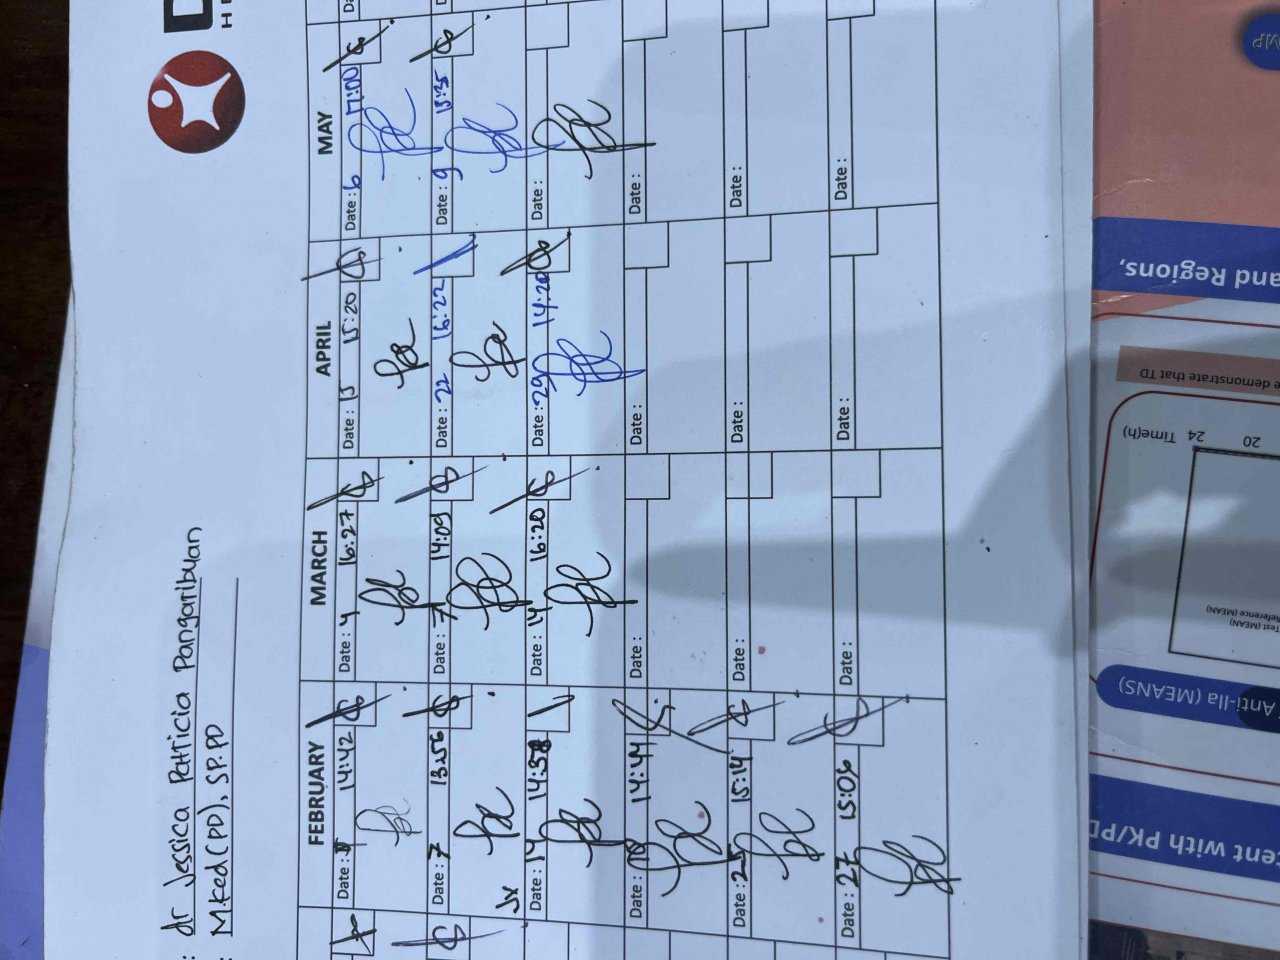 : dr Jessica Patricia Pangaribuan
: M.Ked(PD), SP.PD
FEBRUARY
MARCH
APRIL
MAY
Date : 14:42
Date : 4 16:27
Date : 15:20
Date : 6 17:00
Date : 7 13.56
Date : 7 14:09
Date : 22 16:22
Date : 9 15:35
Jx
Date : 14 14:38
Date : 14 16:20
Date : 29 14:20
Date :
Date : 18 14:44
Date :
Date :
Date :
Date : 25 15:14
Date :
Date :
Date :
Date : 27 15:05
Date :
Date :
Date :
and Regions,
e demonstrate that TD
Time(h)
20 24
Test (MEAN)
Reference (MEAN)
Anti-IIa (MEANS)
cent with PK/PD